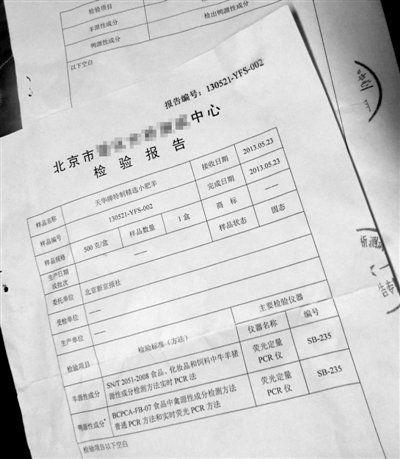 检验项目
羊源性成分
鸭源性成分
检出鸭源性成分
以下空白
报告编号：130521-YFS-002
北京市 中心
检 验 报 告
样品名称 天华牌特制精选小肥羊 接收日期 2013.05.23
样品编号 130521-YFS-002 完成日期 2013.05.23
样品规格 500克/盒 样品数量 1盒 商 标 ——
生产日期
或批次 —— 样品状态 固态
委托单位 北京新京报社
受检单位 ——
生产单位 ——
检验项目 检验标准（方法） 主要检验仪器
仪器名称 编号
羊源性成分 SN/T 2051-2008 食品、化妆品和饲料中牛羊猪
源性成分检测方法实时 PCR 法 荧光定量
PCR 仪 SB-235
鸭源性成分* BCPCA-FB-07 食品中禽源性成分检测方法
普通 PCR 方法和实时荧光 PCR 方法 荧光定量
PCR 仪 SB-235
检验项目以下空白